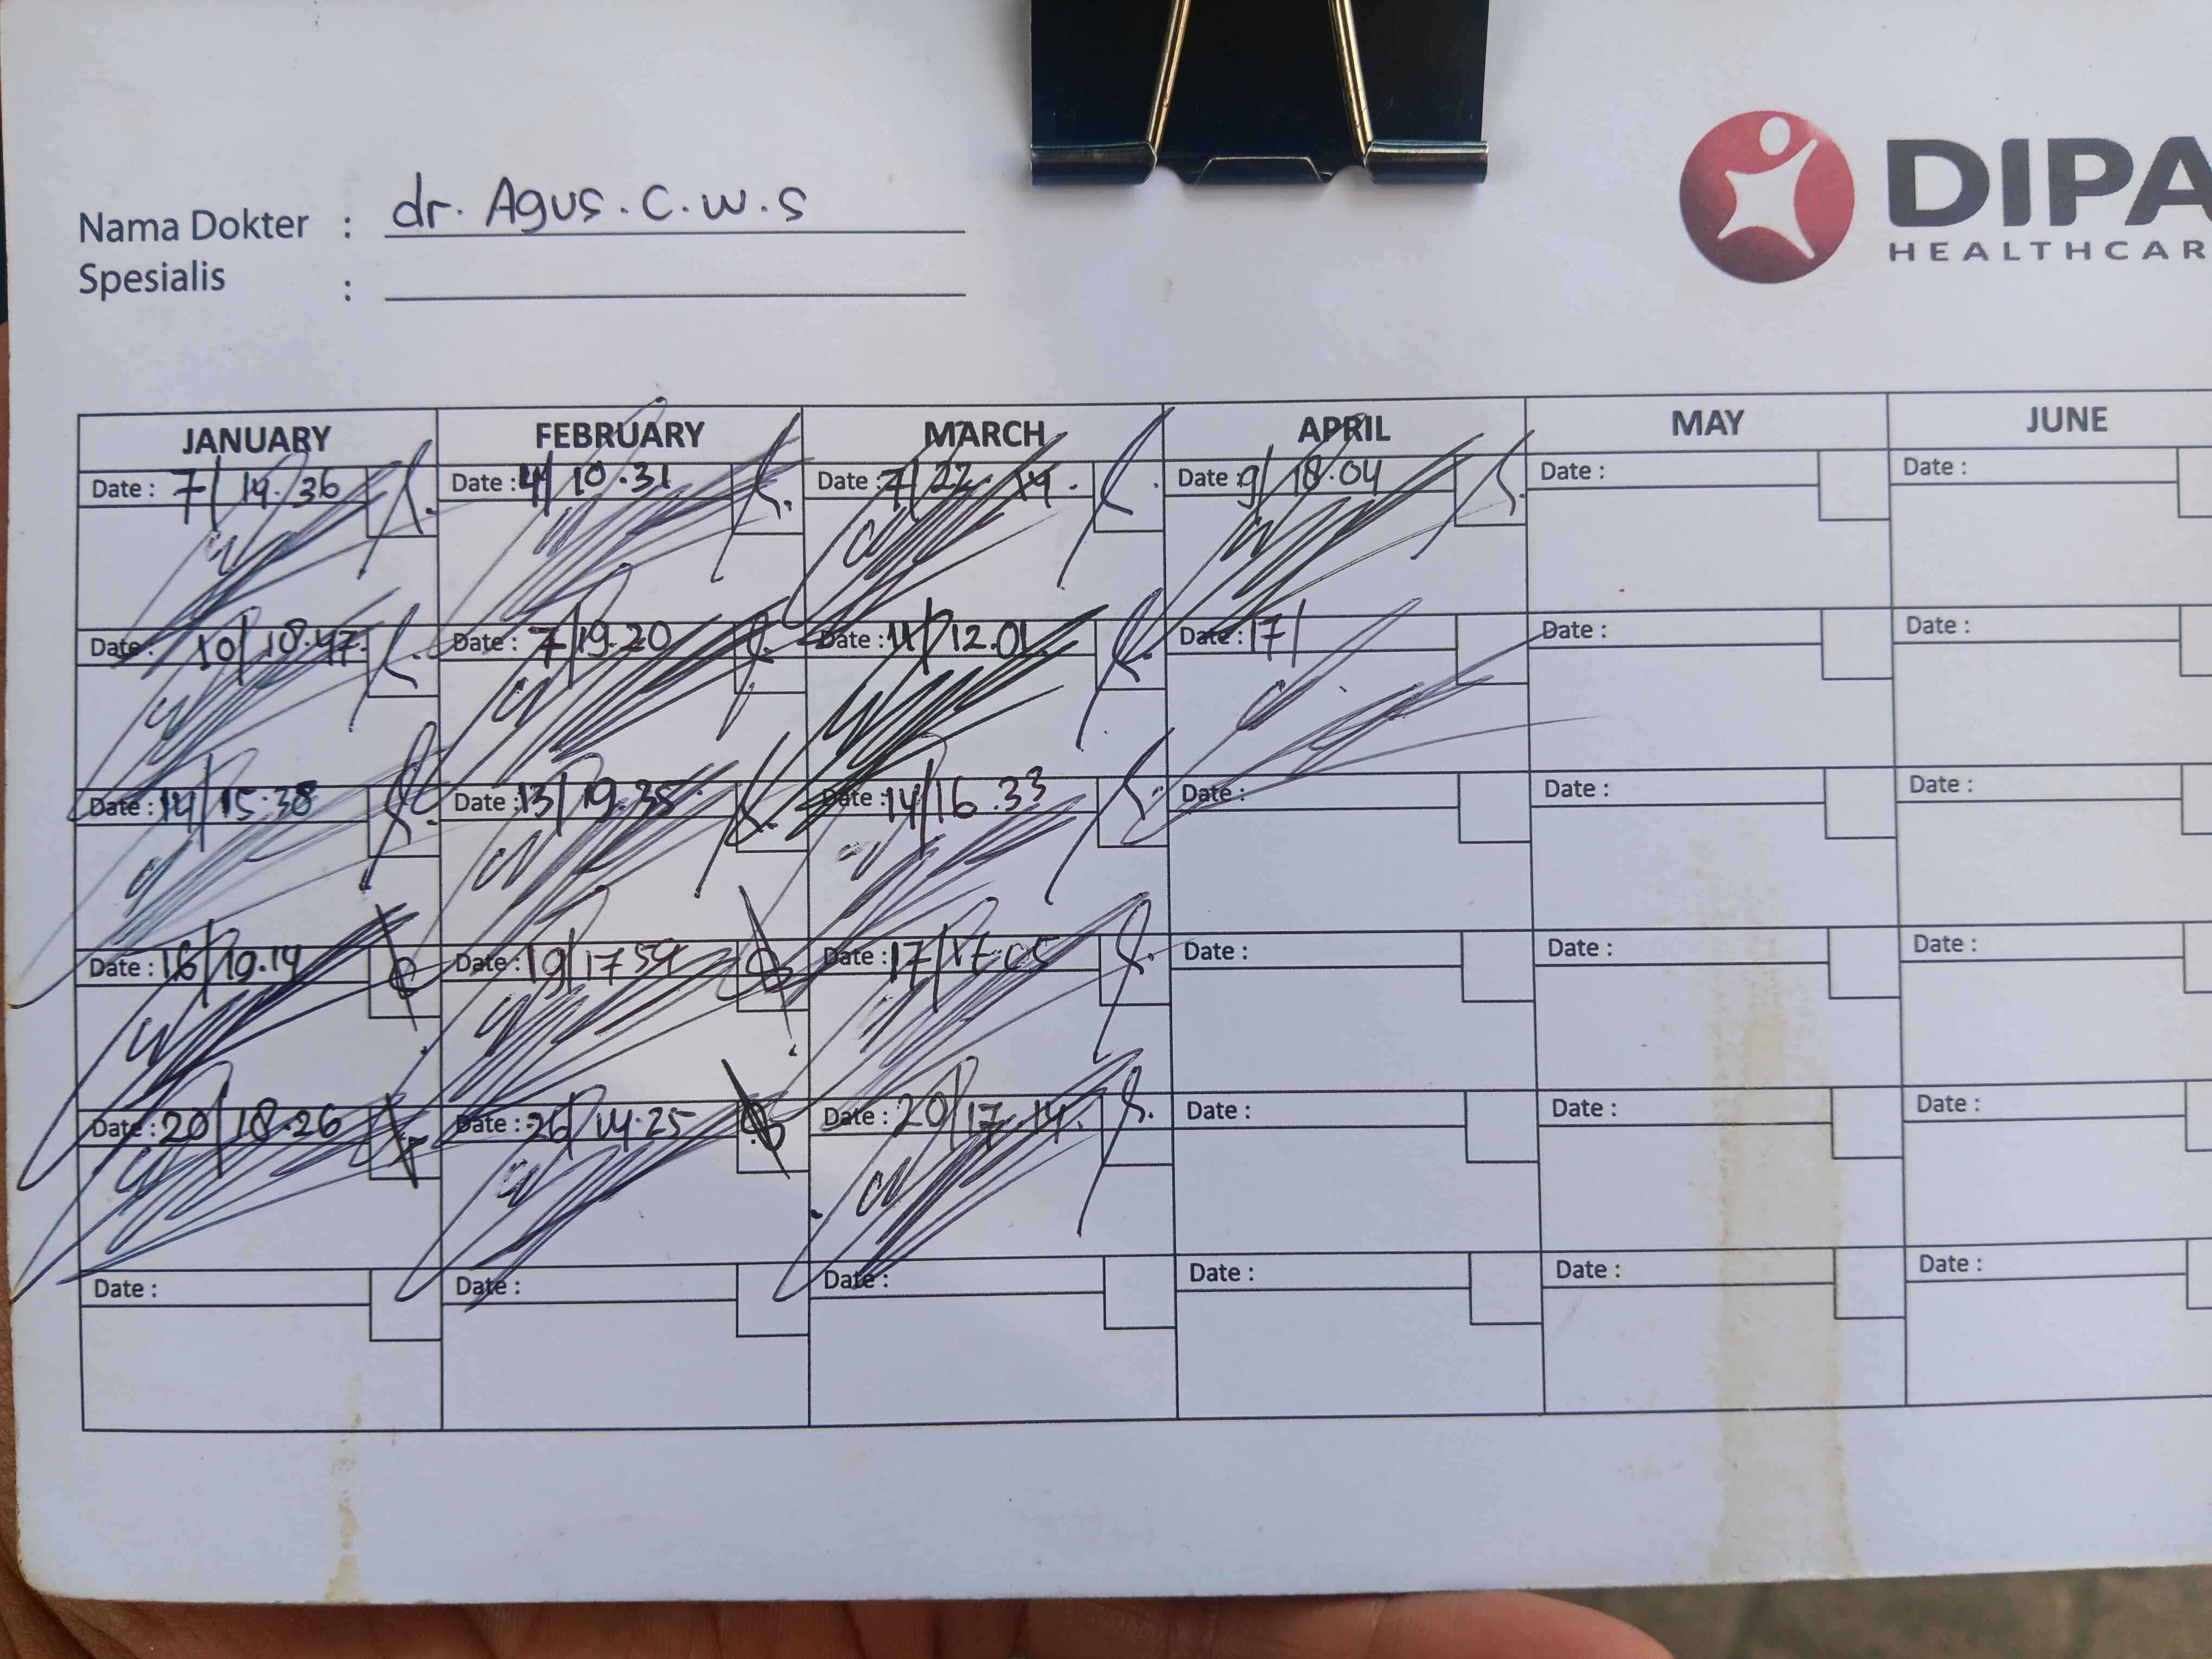 Nama Dokter : dr. Agus. C. W. S
Spesialis :
DIPA
HEALTHCAR
JANUARY FEBRUARY MARCH APRIL MAY JUNE
Date : 7/ 19.36 Date : 4/ 10.31 Date : 7/ 22 19. Date : 9/ 18.04 Date : Date :
Date : 10/ 18.47 Date : 7/ 19.20 Date : 11/ 12.01 Date : 17/ Date : Date :
Date : 14/ 15.38 Date : 13/ 19.35 Date : 14/ 16.33 Date : Date : Date :
Date : 16/ 19.14 Date : 19/ 17 59 Date : 17/ 17.05 Date : Date : Date :
Date : 20/ 18.26 Date : 26/ 14.25 Date : 20/ 17.14. Date : Date : Date :
Date : Date : Date : Date : Date : Date :